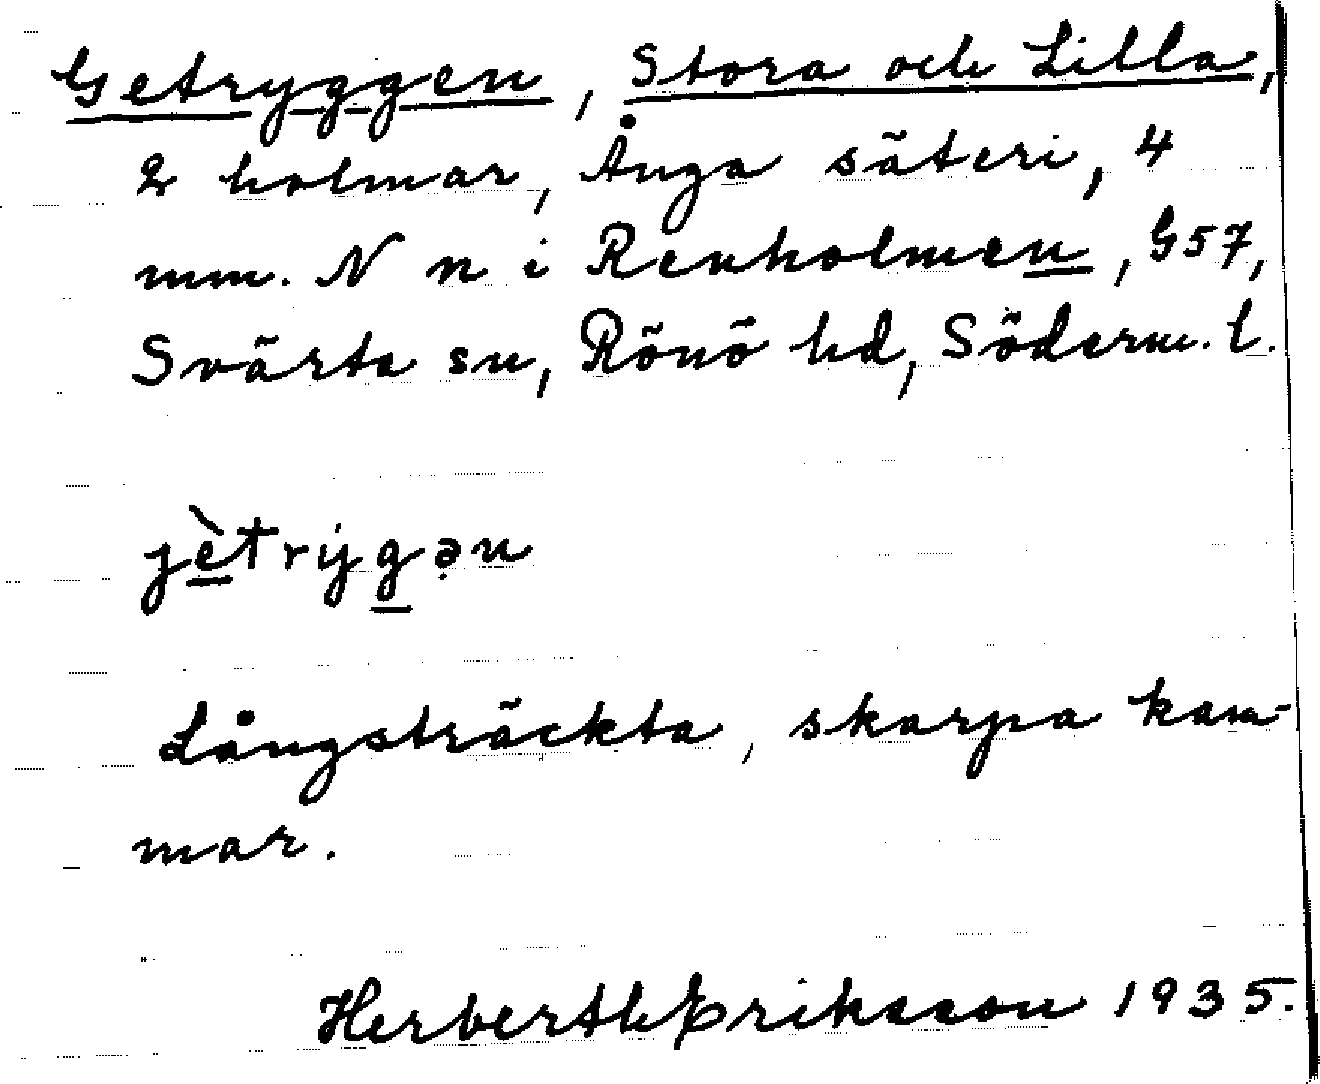 Getryggen, Stora och Lilla,
2 holmar, Ånga säteri, 4
mm. N n i Renholmen, G57,
Svärta sn, Rönö hd, Söderm. l.
jètrýgən
Långsträckta, skarpa kam-
mar.
Herberth Eriksson 1935.